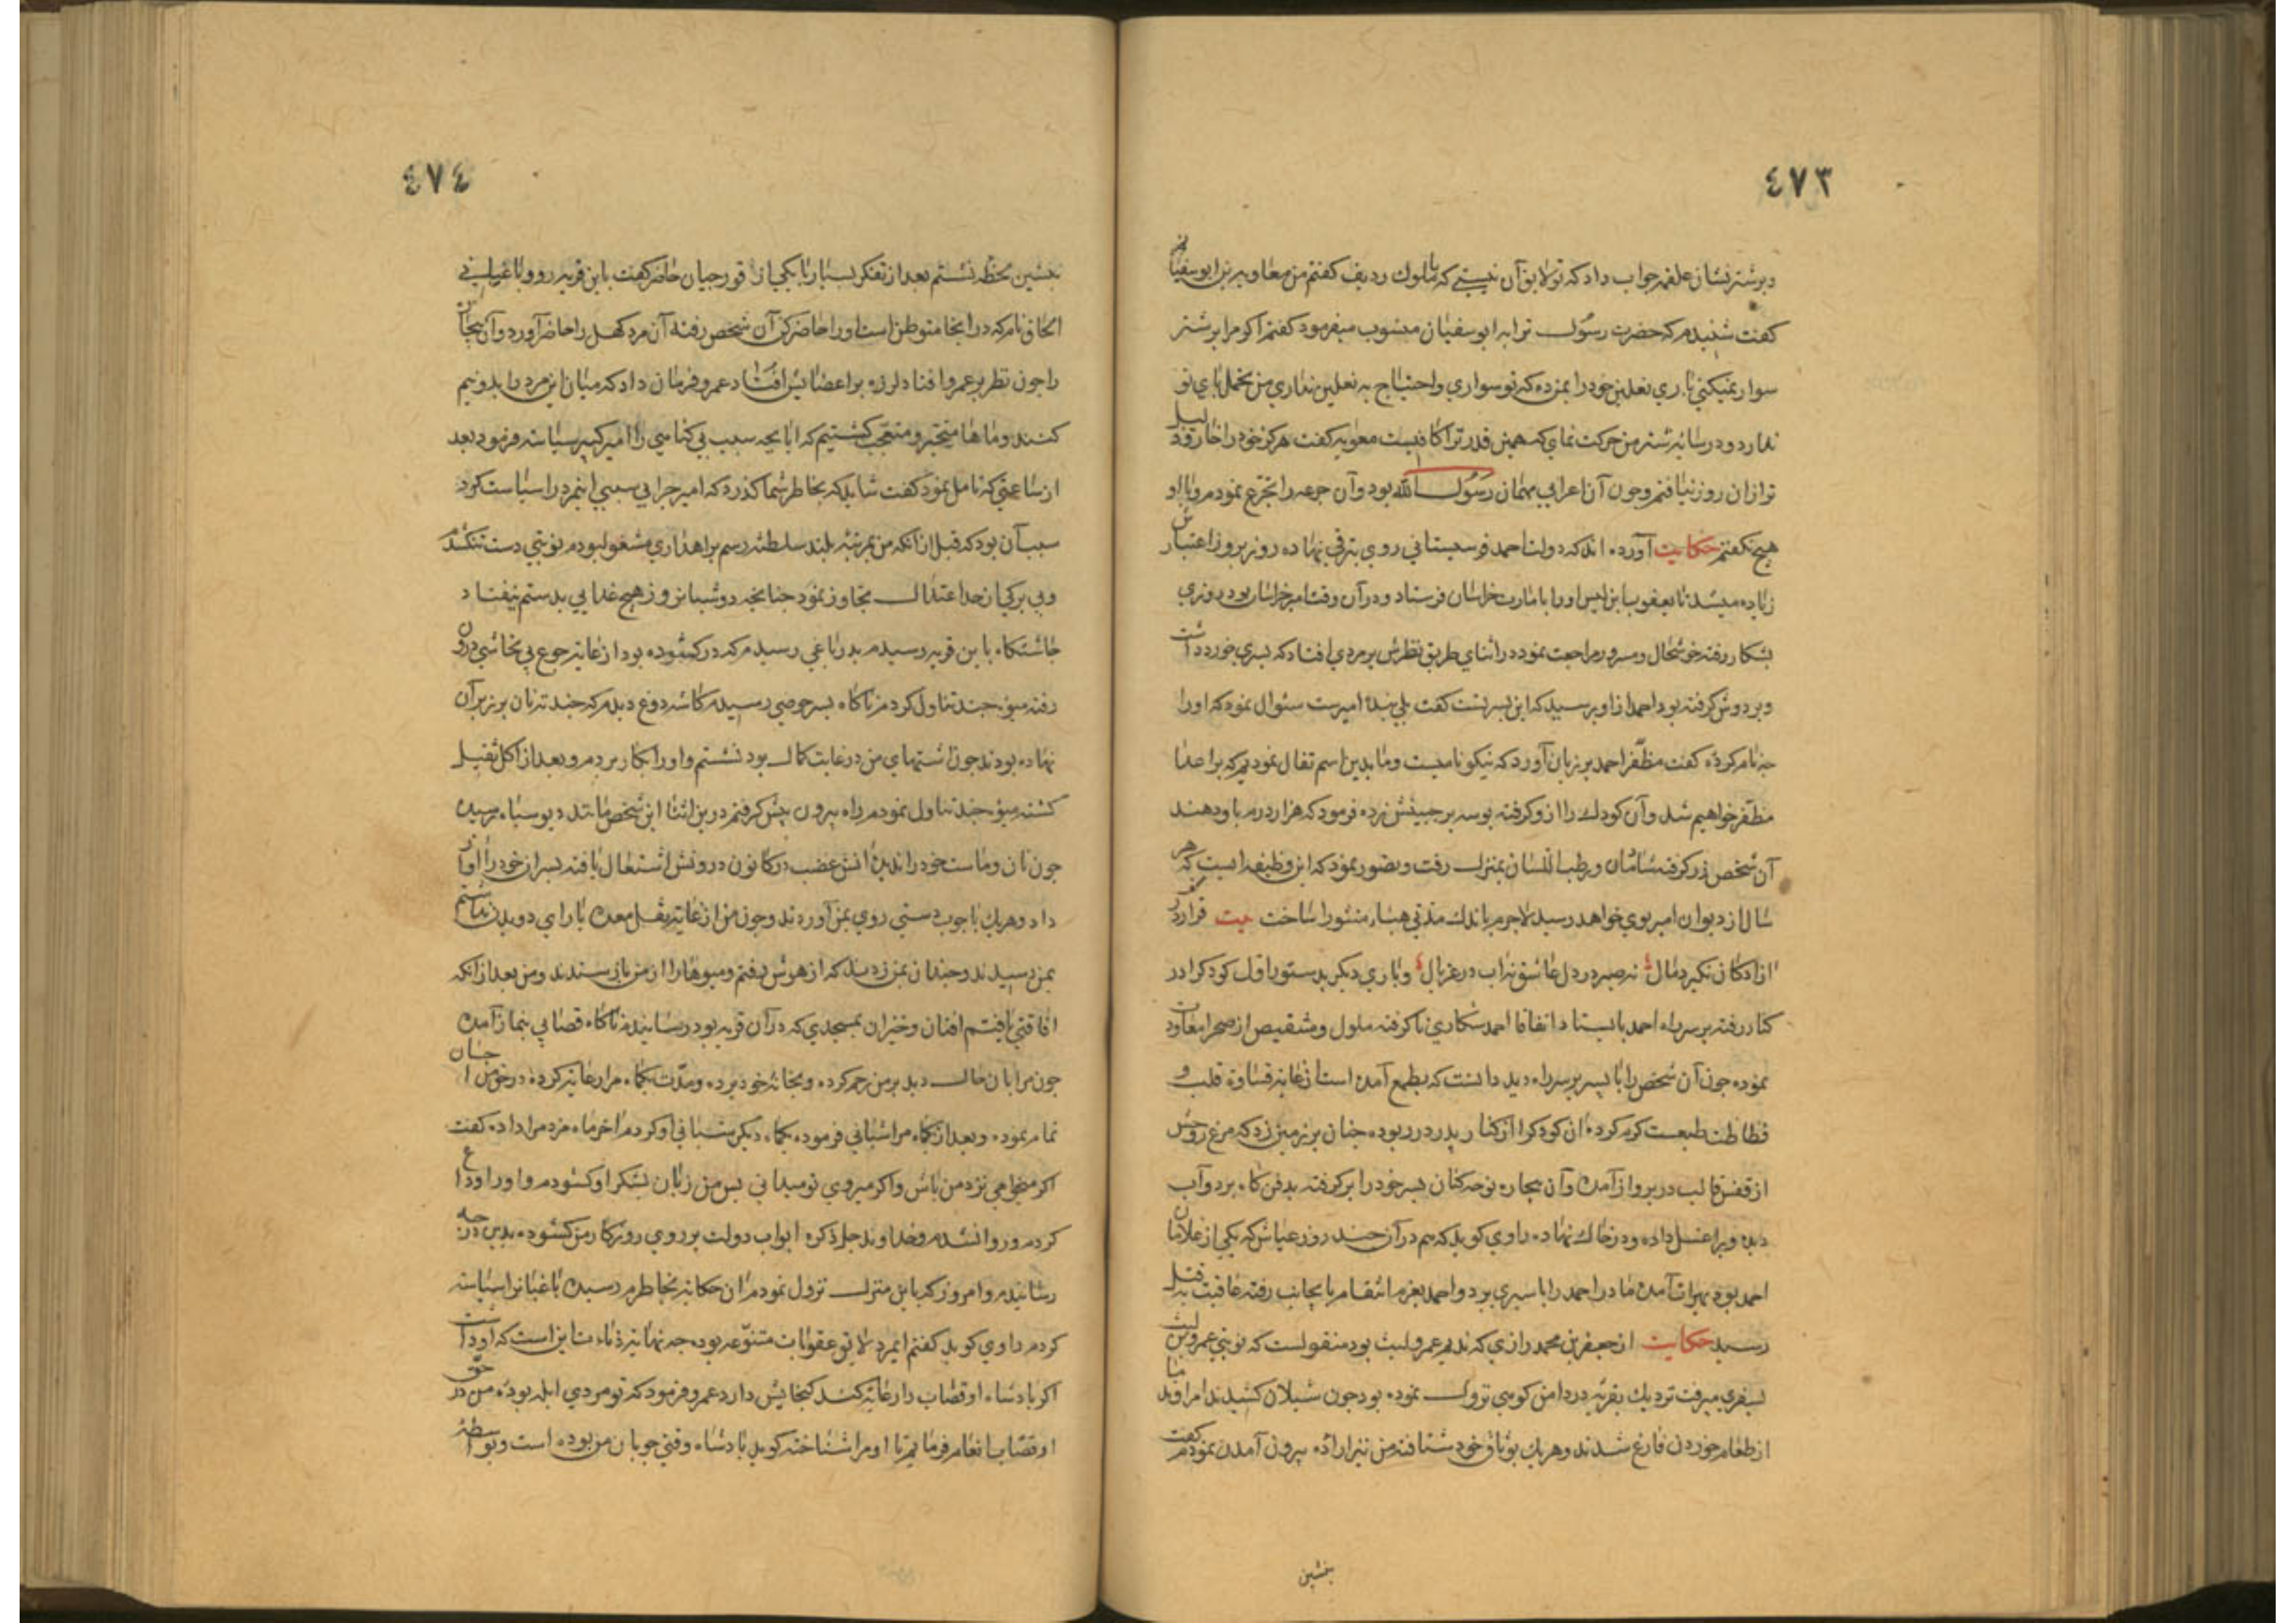 ٤٧٣
و بر شتر نشان علقمه جواب داد که تو لایق آن نیستی که با ملوک ردیف گفتم من معاویه بن ابوسفیان
گفت شنیدم که حضرت رسول ترا به ابوسفیان منسوب میفرمود گفتم اکر مرا بر شتر
سوار نمیکنی باری نعلین خود را بمن ده که تو سواری و احتیاج به نعلین نداری من تحمل باری تو
ندارد و در سایه شتر من حرکت نمای که همین قدر ترا کافیست معویه گفت هرگز خود را خار و ذلیل
تر از ان روز نیافتم و چون آن اعرابی مهمان رسول الله بود و آن جرعه را تجرع نمودم و با او
هیچ نگفتم حکایت آورده اند که دولت احمد قوسیستانی روی بترقی نهاده روز بروز اعتبارش
زیاده میشد تا یعقوب بن لیس او را بامارت خراسان فرستاد و در آن وقت امیر خراسان بود روزی
بشکار رفته خوشحال و مسرور مراجعت نمود در اثنای طریق نظرش بر مردی افتاد که پسری خورد داشت
و بر دوش گرفته بود احمد از او پرسید که این پسر تست گفت بلی بنده امیرست سئوال نمود که او را
چه نام کرده گفت مظفر احمد بر زبان آورد که نیکو نامیست و ما بدین اسم تفال نمودیم که بر اعدا
مظفر خواهیم شد و آن کودک را از و گرفته بوسه بر جبینش زده فرمود که هزار درم باو دهند
آن شخص زر گرفته شادمان و رطب اللسان بمنزل رفت و تصور نمود که این وظیفه ایست که هر
سال از دیوان امیر بوی خواهد رسید لاجرم باندک مدتی هباء منثورا ساخت بیت قرار در کف
ازادکان نگیرد مال نه صبر در دل عاشق نه اب در غربال و باری دیگر بدستور اول کودک را در
کنار رفته بر سر راه احمد بایستاد اتفاقا احمد شکاری نا کرفته ملول و منقبض از صحرا معاودت
نموده چون آن شخص را با پسر بر سر راه دید دانست که بطمع آمده است از غایة قساوة قلب و
فظاظت طبیعت کرم کرده ان کودک را از کنار پدر در ربوده چنان بر زمین زد که مرغ روحش
از قفس قالب در پرواز آمده و آن بیچاره نوحه کنان پسر خود را بر گرفته بدفن کاه برد و آب
دیده ویرا غسل داده و در خاک نهاده راوی کوید که هم در آن چند روز عیاش که یکی از غلامان
احمد بود بهرات آمده مادر احمد را باسیری برد و احمد بعزم انتقام بانجانب رفته عاقبت به قتل
رسید حکایت از جعفر بن محمد رازی که ندیم عمرو لیث بود منقولست که نوبتی عمرو بن لیث
بسفری میرفت نزدیک بقریه در دامن کوهی نزول نموده بود چون شیلان کشیدند امرا و ندما
از طعام خوردن فارغ شدند و هر یک بوثاق خود شتافته من نیز اراده بیرون آمدن نمودم گفت
بنشین
٤٧٤
بنشین لحظه نشستم بعد از تفکر بسیار با یکی از قورجیان حاضر گفت باین قریه رو و باغبانی
اسحاق نام که در اینجا متوطن است او را حاضر کن آن شخص رفته آن مرد کهل را حاضر آورد و آن بیچاره
را چون نظر بر عمرو افتاد لرزه بر اعضایش افتاد عمرو فرمان داد که میان این مرد را بدو نیم
کنند و ماها متحیر و متعجب گشتیم که ایا بچه سبب بی گناهی را امیر کبیر سیاسة فرمود بعد
از ساعتی که تامل نمود گفت شاید که بخاطر شما گذرد که امیر چرا بی سببی اینمرد را سیاست کرد
سبب آن بود که قبل از انکه من بمرتبه بلند سلطنه رسم براهداری مشغول بودم نوبتی دست تنگی شد
و بی برگی از حد اعتدال تجاوز نمود چنانچه دو شبانروز هیچ غذایی بدستم نیفتاد
چاشتکاه باین قریه رسیدم بدر باغی رسیدم که در گشوده بود از غایة جوع بی تحاشی درون
رفته میوه چند تناول کردم ناکاه بسر حوضی رسیدم کاسه دوغ دیدم که چند ته نان بر زبر آن
نهاده بودند چون اشتهای من در غایت کمال بود نشستم و او را بکار بردم و بعد از اکل ثقیل
گشته میوه چند تناول نمودم راه بیرون پیش گرفتم درین اثنا این شخص مانند دیو سیاه برسید
چون نان و ماست خود را ندیده اتش غضب در کانون درونش اشتعال یافته پسران خود را اواز
داد و هر یک با چوب دستی روی بمن آوردند و چون من از غایة ثقل معده یارای دویدن نداشتم
بمن رسیدند و چندان بمن زدند که از هوش رفتم و میوها را از من باز ستدند و من بعد از انکه
افاقتی یافتم افتان و خیزان بمسجدی که در آن قریه بود رسانیدم ناکاه قصابی بنماز آمده
چون مرا بان حال دید بر من رحم کرده و بخانه خود برده و مدت یکماه مرا رعایة کرده در حق من احسان
تمام نموده و بعد از یکماه مرا شبانی فرموده یکماه دیگر شبانی او کردم اخر ماه مزد مرا داده گفت
اکر میخواهی نزد من باش و اکر میروی تو میدانی پس من زبان بشکر او گشودم و او را وداع
کردم و روانشدم و خداوند جل ذکره ابواب دولت بر روی روزکار من گشوده بدین درجه
رسانیدم و امروز که باین منزل نزول نمودم ان حکایة بخاطرم رسیده باغبانرا سیاسة
کردم راوی کوید گفتم اینمرد لایق عقوبات متنوعه بوده چه نهایة دناءت این است که او داشت
اکر پادشاه او قصاب را رعایة کند گنجایش دارد عمرو فرمود که تو مردی ابله بوده من در حق
او قصاب انعام فرمایم تا او مرا شناخته کوید پادشاه وقتی چوبان من بوده است و بواسطه